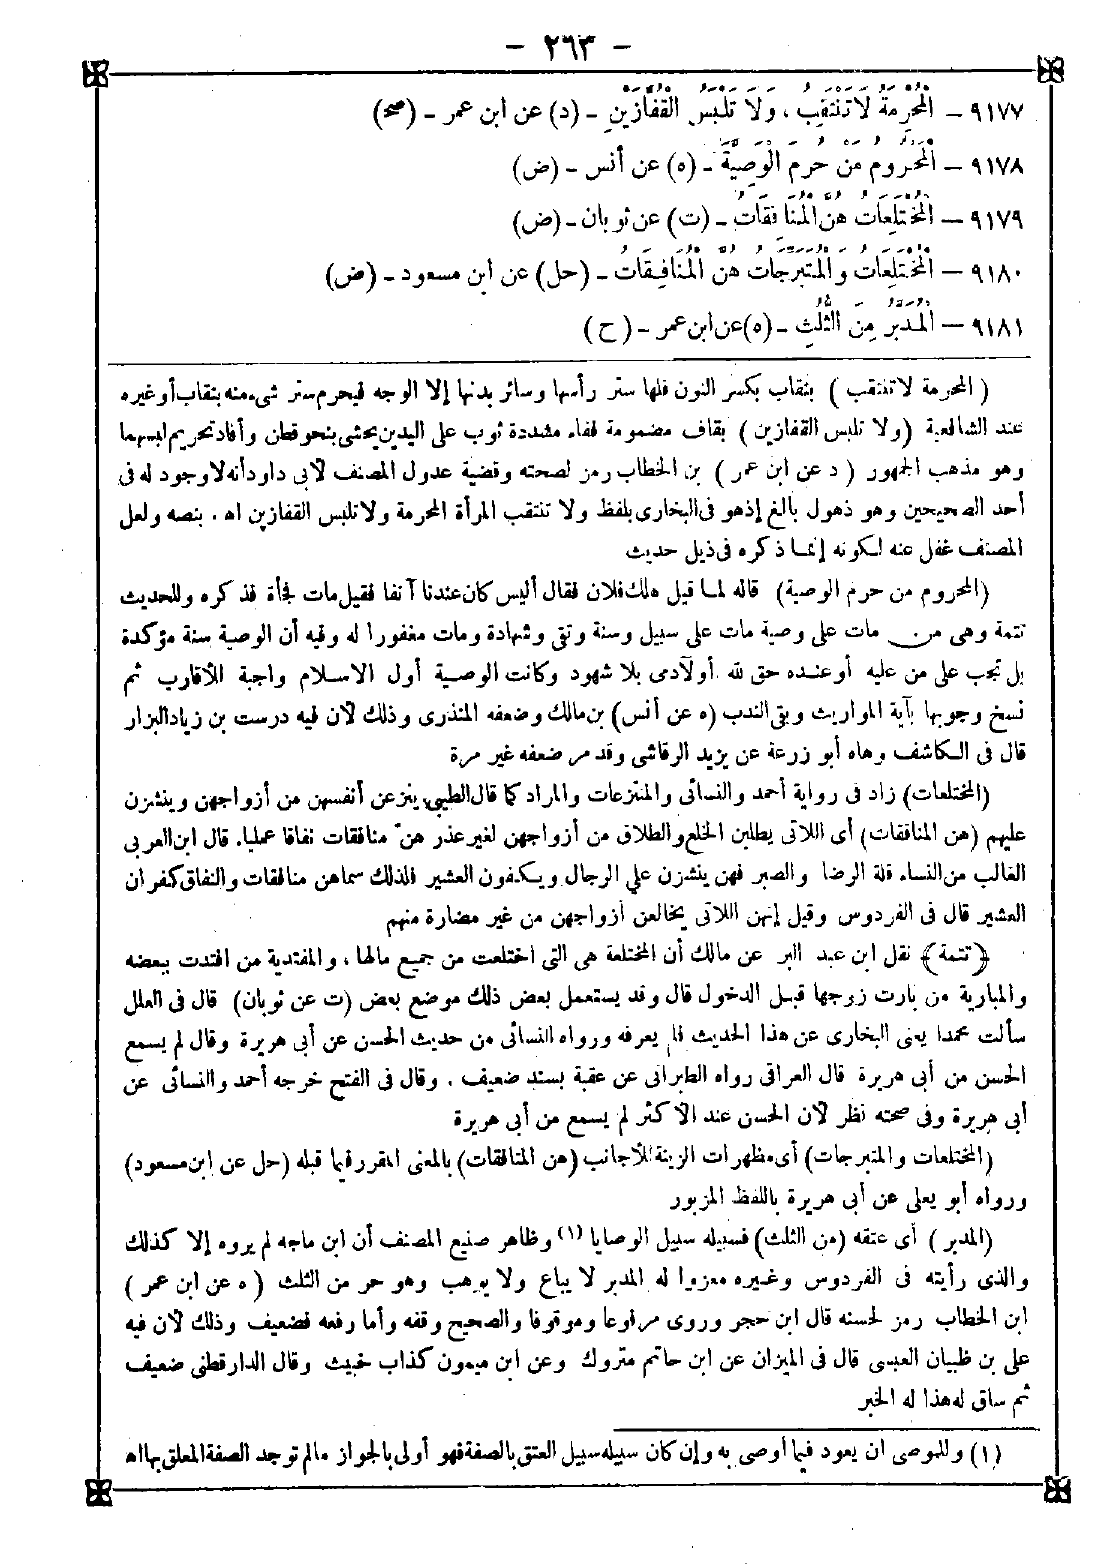 - ٢٦٣ -
٩١٧٧ - الْمُحْرِمَةُ لَا تَنْتَقِبُ ، وَلَا تَلْبَسُ الْقُفَّازَيْنِ - (د) عن ابن عمر - (صح)
٩١٧٨ - الْمَحْرُومُ مَنْ حُرِمَ الْوَصِيَّةَ - (ه) عن أنس - (ض)
٩١٧٩ - الْمُخْتَلِعَاتُ هُنَّ الْمُنَافِقَاتُ - (ت) عن ثوبان - (ض)
٩١٨٠ - الْمُخْتَلِعَاتُ وَالْمُتَبَرِّجَاتُ هُنَّ الْمُنَافِقَاتُ - (حل) عن ابن مسعود - (ض)
٩١٨١ - الْمُدَبَّرُ مِنَ الثُّلُثِ - (ه) عن ابن عمر - (ح)
(المحرمة لا تنتقب) بنقاب بكسر النون فلها ستر رأسها وسائر بدنها إلا الوجه فيحرم ستر شيء منه بنقاب أو غيره
عند الشافعية (ولا تلبس القفازين) بقاف مضمومة ففاء مشددة ثوب على اليدين يحشى بنحو قطن وأفاد تحريم لبسهما
وهو مذهب الجمهور (د عن ابن عمر) بن الخطاب رمز لصحته وقضية عدول المصنف لأبى داود أنه لا وجود له فى
أحد الصحيحين وهو ذهول بالغ إذ هو فى البخارى بلفظ ولا تنتقب المرأة المحرمة ولا تلبس القفازين اه . بنصه ولعل
المصنف غفل عنه لكونه إنما ذكره فى ذيل حديث
(المحروم من حرم الوصية) قاله لما قيل هلك فلان فقال أليس كان عندنا آنفا فقيل مات فجأة فذكره وللحديث
تتمة وهى من مات على وصية مات على سبيل وسنة وتقى وشهادة ومات مغفورا له وفيه أن الوصية سنة مؤكدة
بل تجب على من عليه أو عنده حق لله أو لآدمى بلا شهود وكانت الوصية أول الاسلام واجبة للأقارب ثم
نسخ وجوبها بآية المواريث وبقى الندب (ه عن أنس) بن مالك وضعفه المنذرى وذلك لأن فيه درست بن زياد البزار
قال فى الكاشف وهاه أبو زرعة عن يزيد الرقاشى وقد مر ضعفه غير مرة
(المختلعات) زاد فى رواية أحمد والنسائى والمنتزعات والمراد كما قال الطيبى ينتزعن أنفسهن من أزواجهن وينشزن
عليهم (هن المنافقات) أى اللاتى يطلبن الخلع والطلاق من أزواجهن لغير عذر هنّ منافقات نفاقا عمليا. قال ابن العربى
الغالب من النساء قلة الرضا والصبر فهن ينشزن على الرجال ويكفرن العشير فلذلك سماهن منافقات والنفاق كفران
العشير قال فى الفردوس وقيل إنهن اللاتى يخالعن أزواجهن من غير مضارة منهم
﴿تتمة﴾ نقل ابن عبد البر عن مالك أن المختلعة هى التى اختلعت من جميع مالها ، والمفتدية من افتدت ببعضه
والمبارية من بارت زوجها قبل الدخول قال وقد يستعمل بعض ذلك موضع بعض (ت عن ثوبان) قال فى العلل
سألت محمدا يعنى البخارى عن هذا الحديث فلم يعرفه ورواه النسائى من حديث الحسن عن أبى هريرة وقال لم يسمع
الحسن من أبى هريرة قال العراقى رواه الطبرانى عن عقبة بسند ضعيف . وقال فى الفتح خرجه أحمد والنسائى عن
أبى هريرة وفى صحته نظر لأن الحسن عند الأكثر لم يسمع من أبى هريرة
(المختلعات والمتبرجات) أى مظهرات الزينة للأجانب (هن المنافقات) بالمعنى المقرر فيما قبله (حل عن ابن مسعود)
ورواه أبو يعلى عن أبى هريرة باللفظ المزبور
(المدبر) أى عتقه (من الثلث) فسبيله سبيل الوصايا (١) وظاهر صنيع المصنف أن ابن ماجه لم يروه إلا كذلك
والذى رأيته فى الفردوس وغيره معزوا له المدبر لا يباع ولا يوهب وهو حر من الثلث (ه عن ابن عمر)
ابن الخطاب رمز لحسنه قال ابن حجر وروى مرفوعا وموقوفا والصحيح وقفه وأما رفعه فضعيف وذلك لأن فيه
على بن ظبيان العبسى قال فى الميزان عن ابن حاتم متروك وعن ابن ميمون كذاب خبيث وقال الدارقطنى ضعيف
ثم ساق له هذا له الخبر
(١) وللموصى أن يعود فيما أوصى به وإن كان سبيله سبيل العتق بالصفة فهو أولى بالجواز مالم توجد الصفة المعلق بها اه